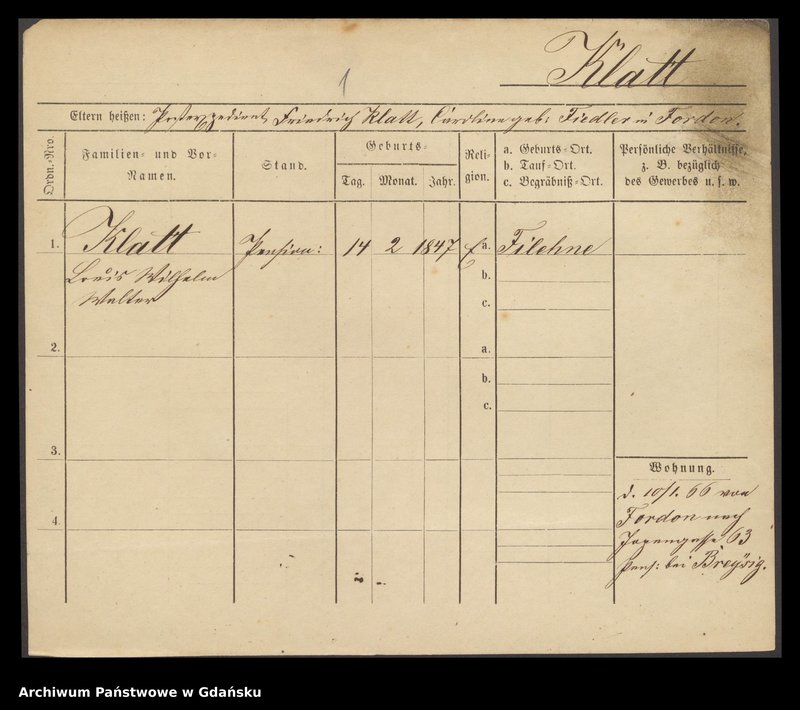 Klatt
1
Eltern heißen: Postexpedient Friedrich Klatt, Caroline geb: Fiedler in Fordon.
Ordn.-Nro.
Familien- und Vor-Namen.
Stand.
Geburts-
Tag. Monat. Jahr.
Religion.
a. Geburts-Ort.
b. Tauf-Ort.
c. Begräbniß-Ort.
Persönliche Verhältnisse,
z. B. bezüglich
des Gewerbes u. s. w.
1. Klatt Pension: 14 2 1847 a. Filehne
Louis Wilhelm b.
Walter c.
2. a.
b.
c.
3.
Wohnung.
d. 10/1. 66 von
Fordon nach
4. Jopengasse 63
Pens: bei Breysig.
Archiwum Państwowe w Gdańsku